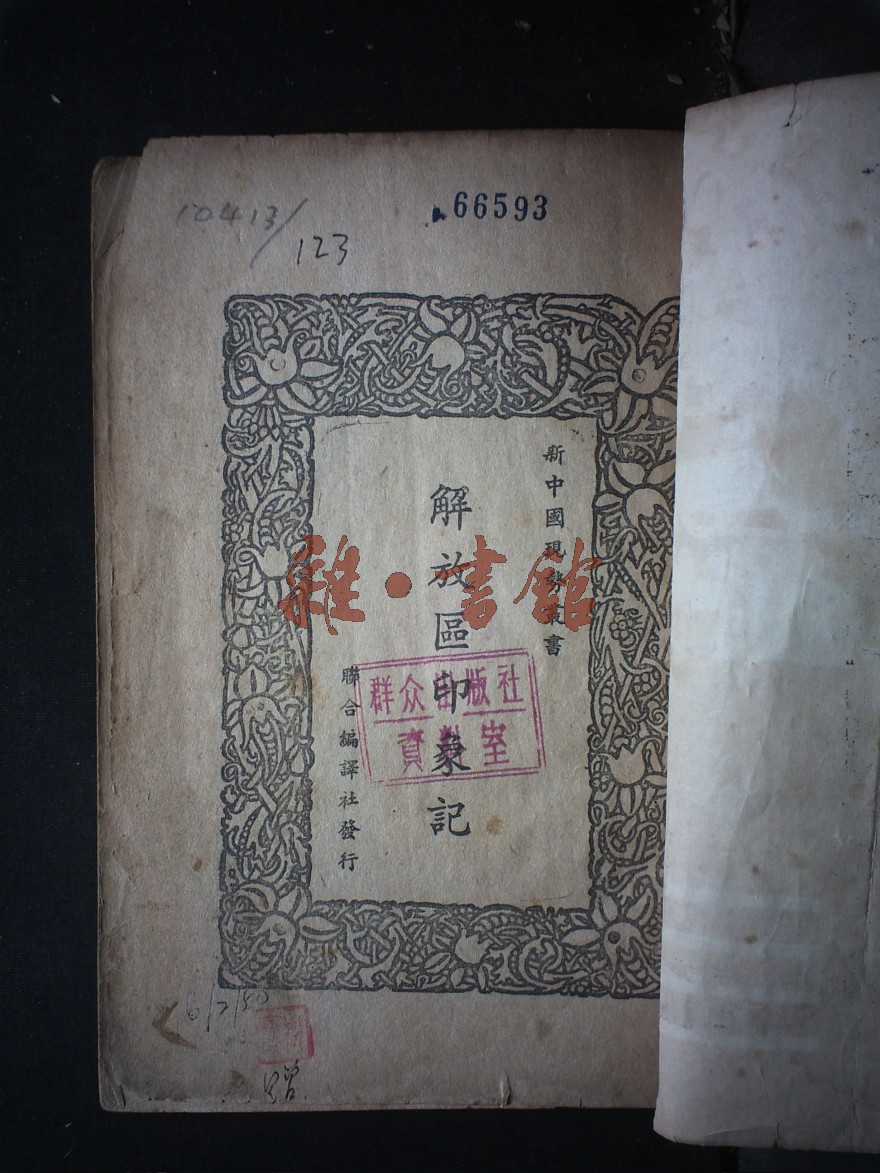 10413/
123
66593
新中國現勢叢書
解放區印象記
聯合編譯社發行
雜·書館
群众出版社
資料室
6/7/50
贈